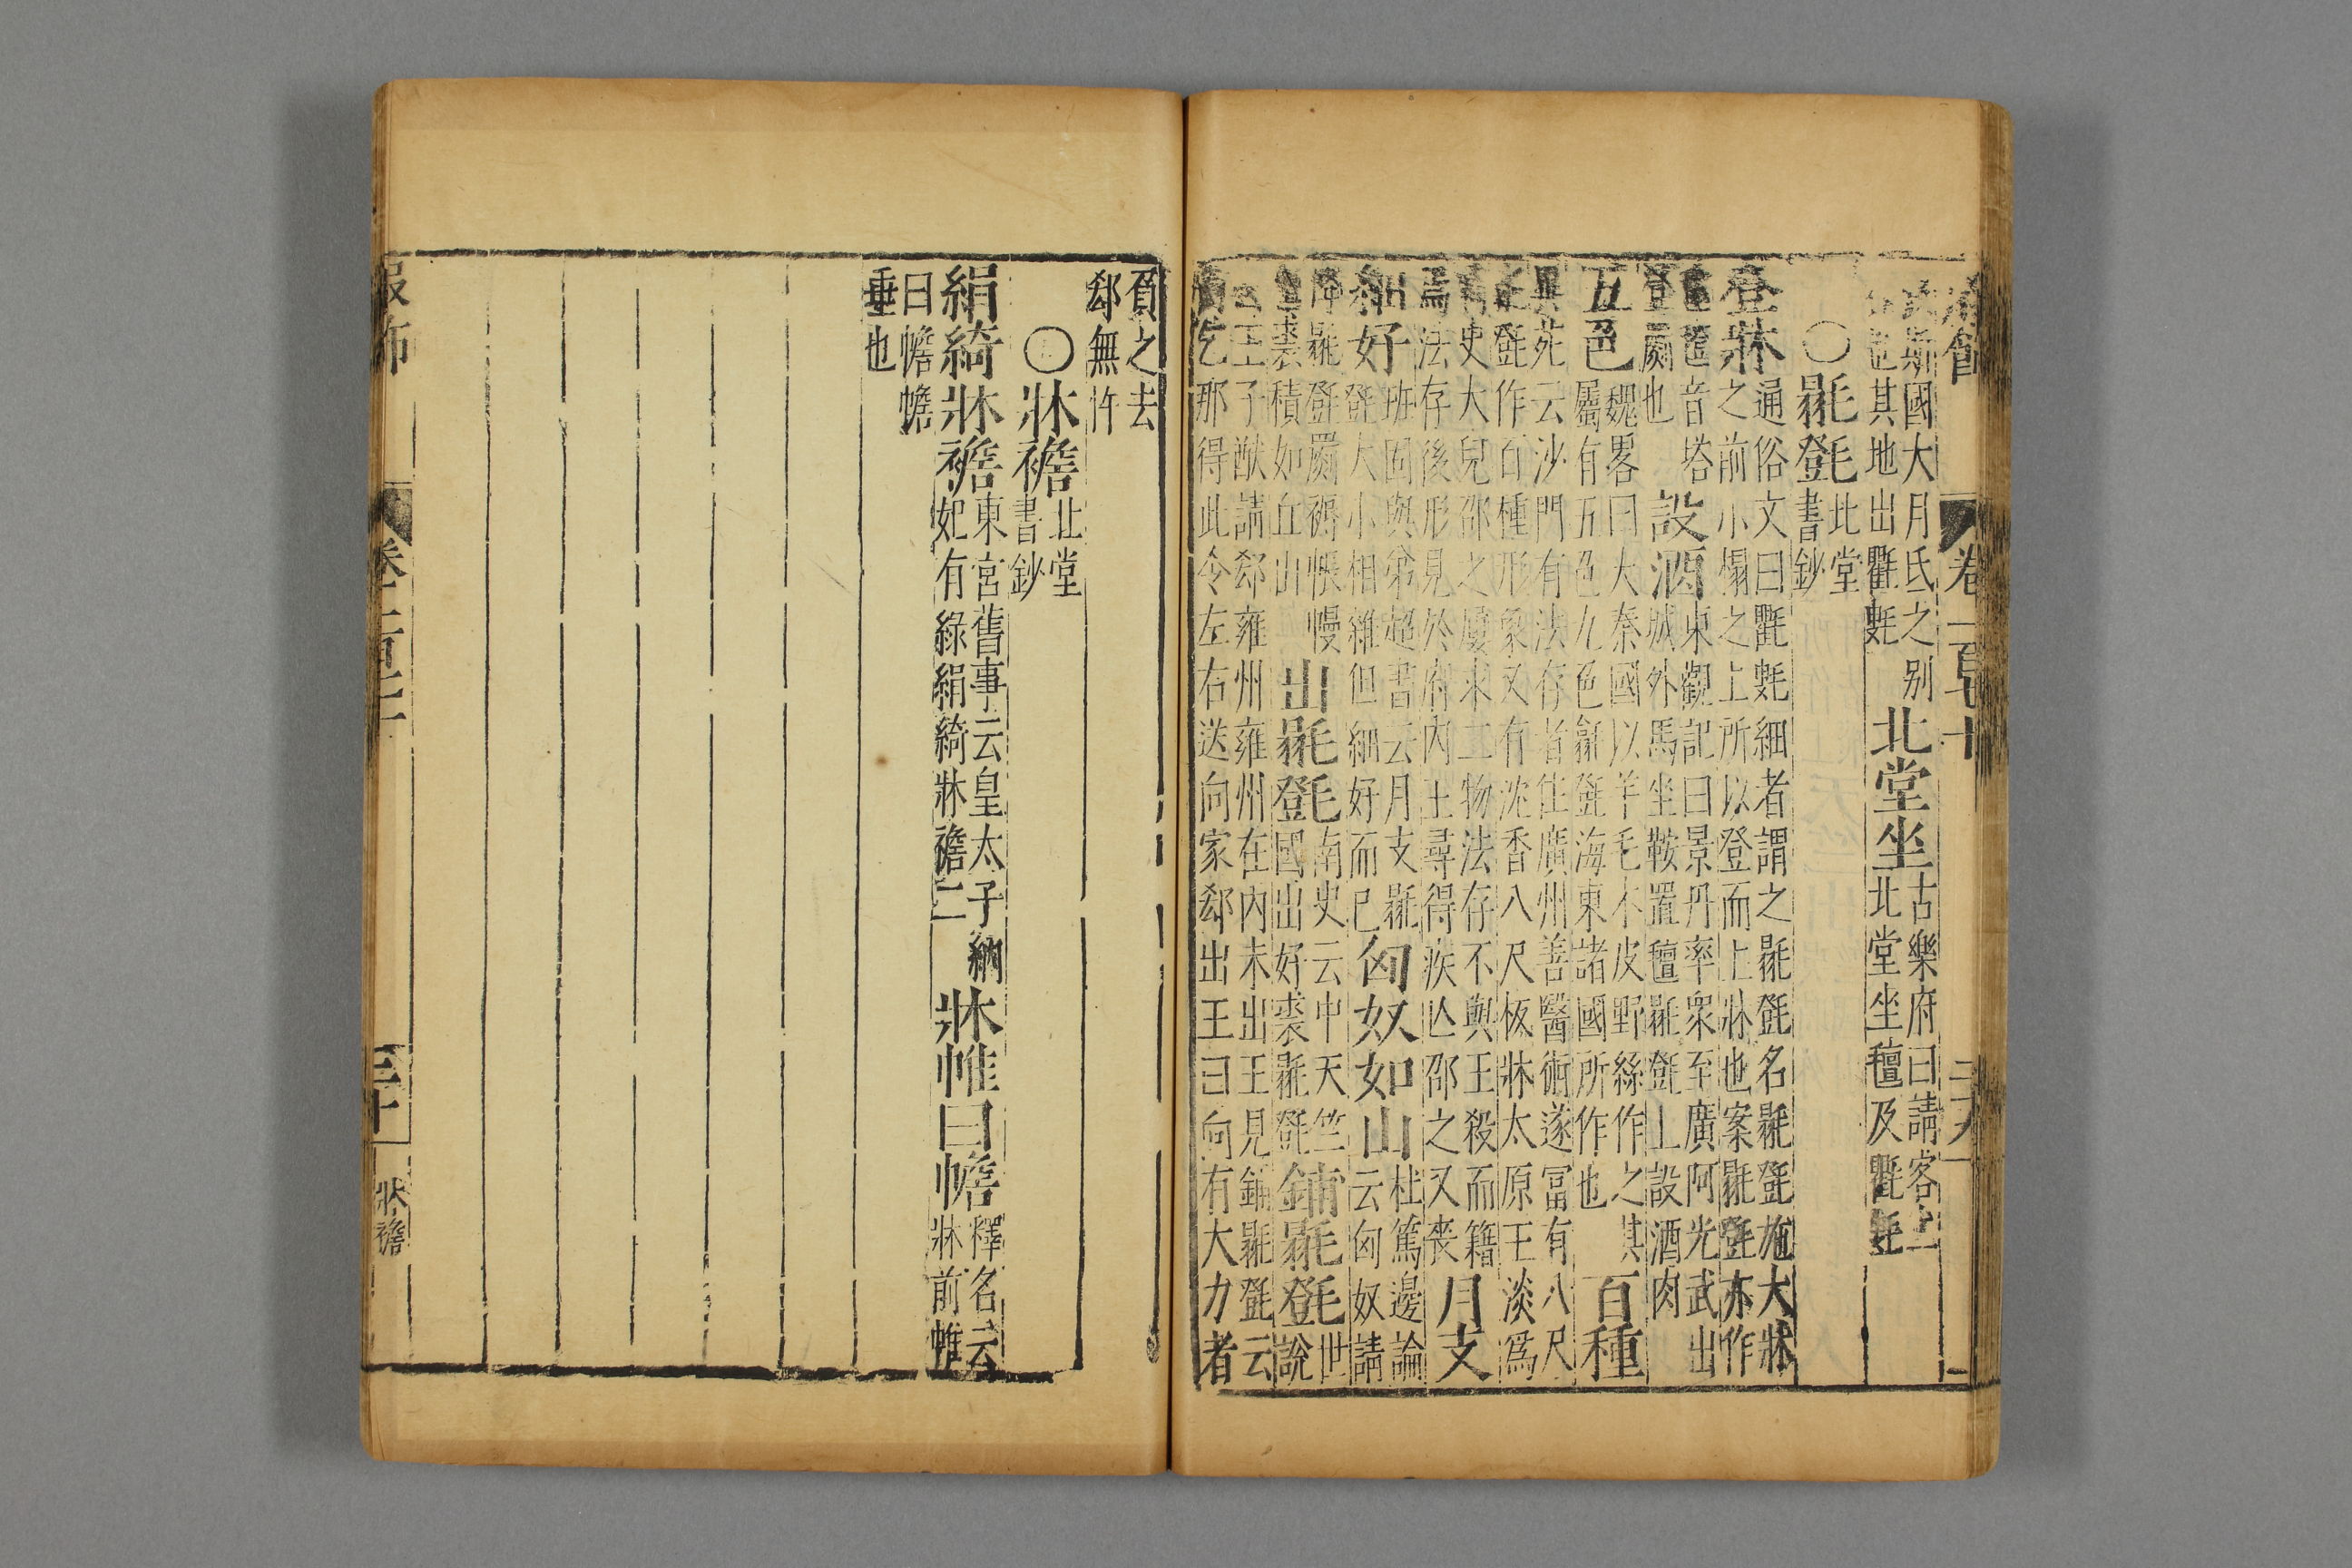 卷一百七十
波斯國大月氏之别
種也其地出氍毹
北堂坐
古樂府曰請客上
北堂坐氊及氍毹
○㲪㲪北堂
書鈔
登牀通俗文曰氍毹細者謂之㲪㲪名㲪㲪施大牀
之前小榻之上所以登而上牀也案㲪㲪亦作
音塔
設酒東觀記曰景丹率衆至廣阿光武出
城外馬坐鞍置氊㲪㲪上設酒肉
罽也
五色魏畧曰大秦國以羊毛木皮野絲作之其
屬有五色九色㲪㲪海東諸國所作也
百種
異苑云沙門有法存者生廣州善醫術遂富有八尺
㲪㲪作百種形象又有沈香八尺板牀太原王淡爲
刺史大兒邵之屢求二物法存不與王殺而籍
焉法存後形見於府内王尋得疾亾邵之又喪
月支
細好班固與弟超書云月支㲪
㲪大小相雜但細好而已
匈奴如山杜篤邊論
云匈奴請
㲪㲪罽褥帳幔
裘積如丘山
出㲪㲪南史云中天竺
國出好裘㲪㲪
鋪㲪㲪世
說
王子猷請郄雍州雍州在内未出王見鋪㲪㲪云
阿乞那得此令左右送向家郄出王曰向有大力者
負之去
郄無忤
○牀襜北堂
書鈔
絹綺牀襜東宮舊事云皇太子納
妃有綠絹綺牀襜二
牀帷曰幨釋名云
牀前帷
曰幨幨
垂也
服飾
卷二百三十
三十
牀襜